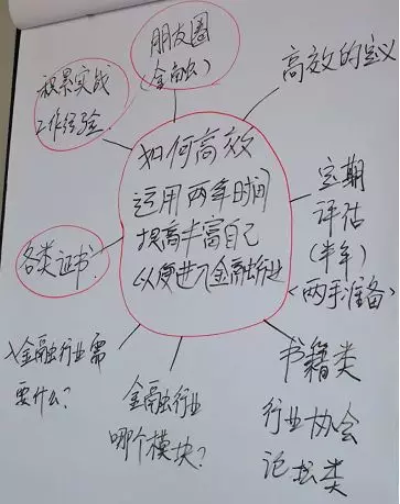 朋友圈
(金融)
积累实战
工作经验
高效的定义
如何高效
运用两年时间
提高丰富自己
以便进入金融行业
定期
评估
(半年)
<两手准备>
各类证书
入金融行业需
要什么?
金融行业
哪个模块?
书籍类
行业协会
论坛类